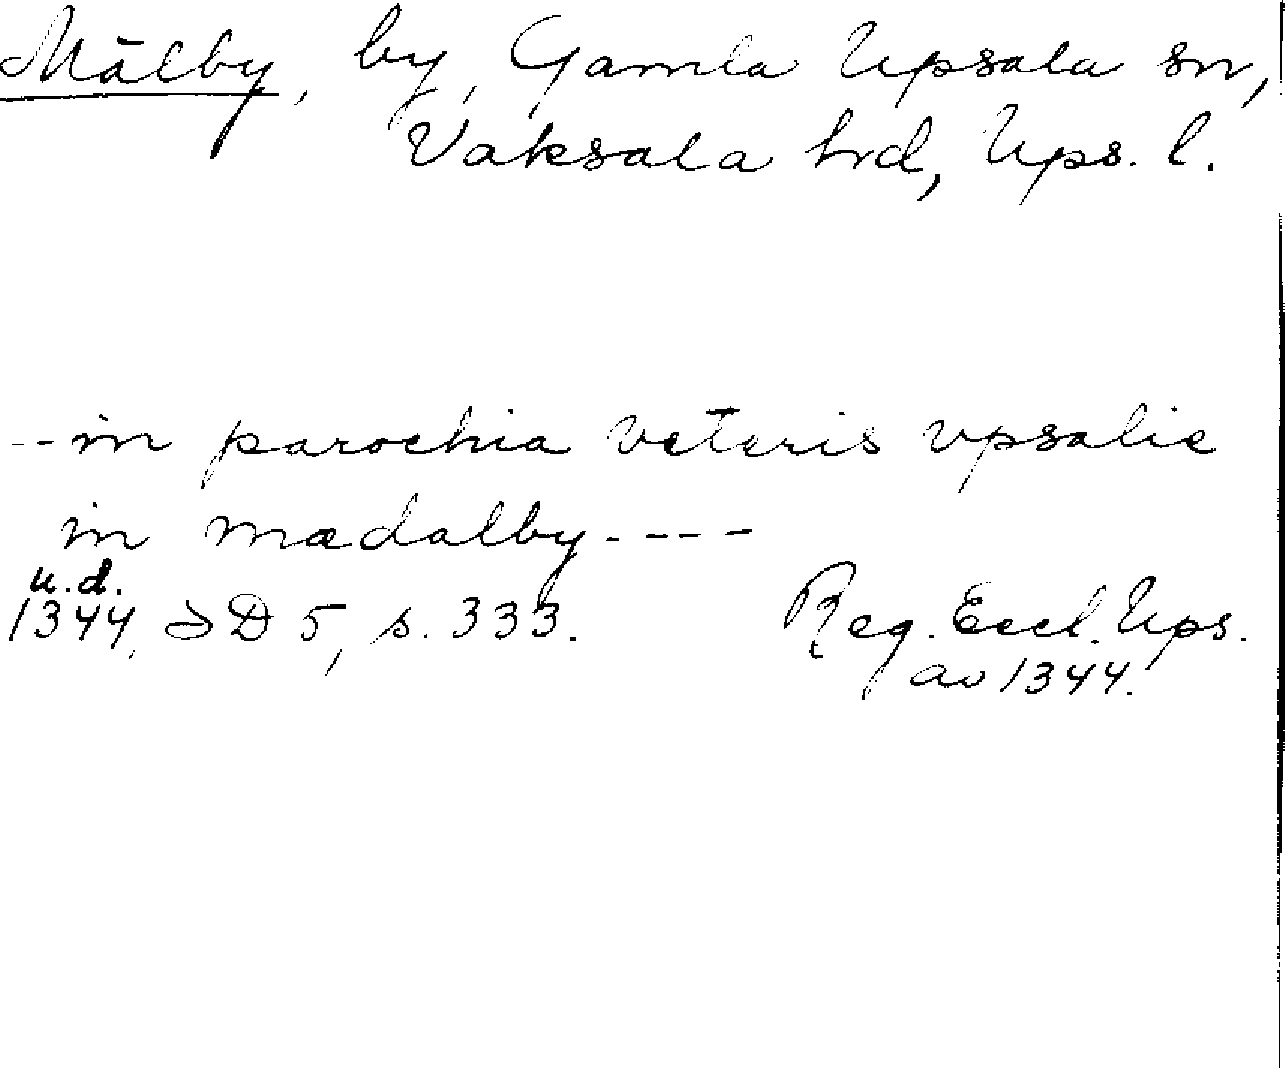 Mälby, by, Gamla Upsala sn,
Vaksala hrd, Ups. l.
--in parochia veteris vpsalie
in mædalby----
u.d.
1344, SD 5, s. 333. Reg. Eccl. Ups.
av 1344.